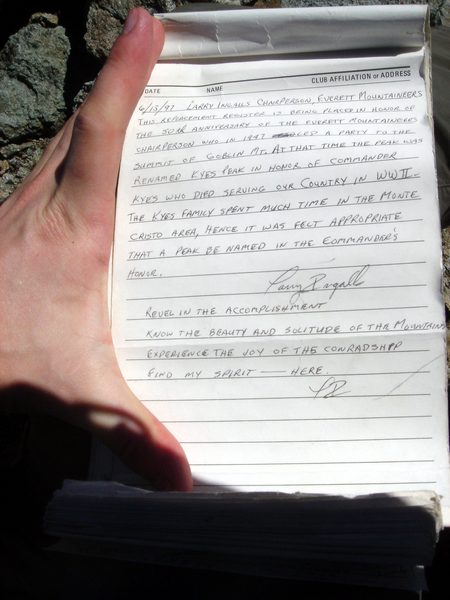 DATE NAME CLUB AFFILIATION or ADDRESS
6/13/97 LARRY INGALLS CHAIRPERSON, EVERETT MOUNTAINEERS
THIS REPLACEMENT REGISTER IS BEING PLACED IN HONOR OF
THE 50TH ANNIVERSARY OF THE EVERETT MOUNTAINEERS
CHAIRPERSON WHO IN 1947 A PARTY TO THE
SUMMIT OF GOBLIN MT. AT THAT TIME THE PEAK WAS
RENAMED KYES PEAK IN HONOR OF COMMANDER
KYES WHO DIED SERVING OUR COUNTRY IN WW II.
THE KYES FAMILY SPENT MUCH TIME IN THE MONTE
CRISTO AREA, HENCE IT WAS FELT APPROPRIATE
THAT A PEAK BE NAMED IN THE COMMANDER'S
HONOR.
Larry Ingalls
REVEL IN THE ACCOMPLISHMENT
KNOW THE BEAUTY AND SOLITUDE OF THE MOUNTAINS
EXPERIENCE THE JOY OF THE CONRADSHIP
FIND MY SPIRIT — HERE.